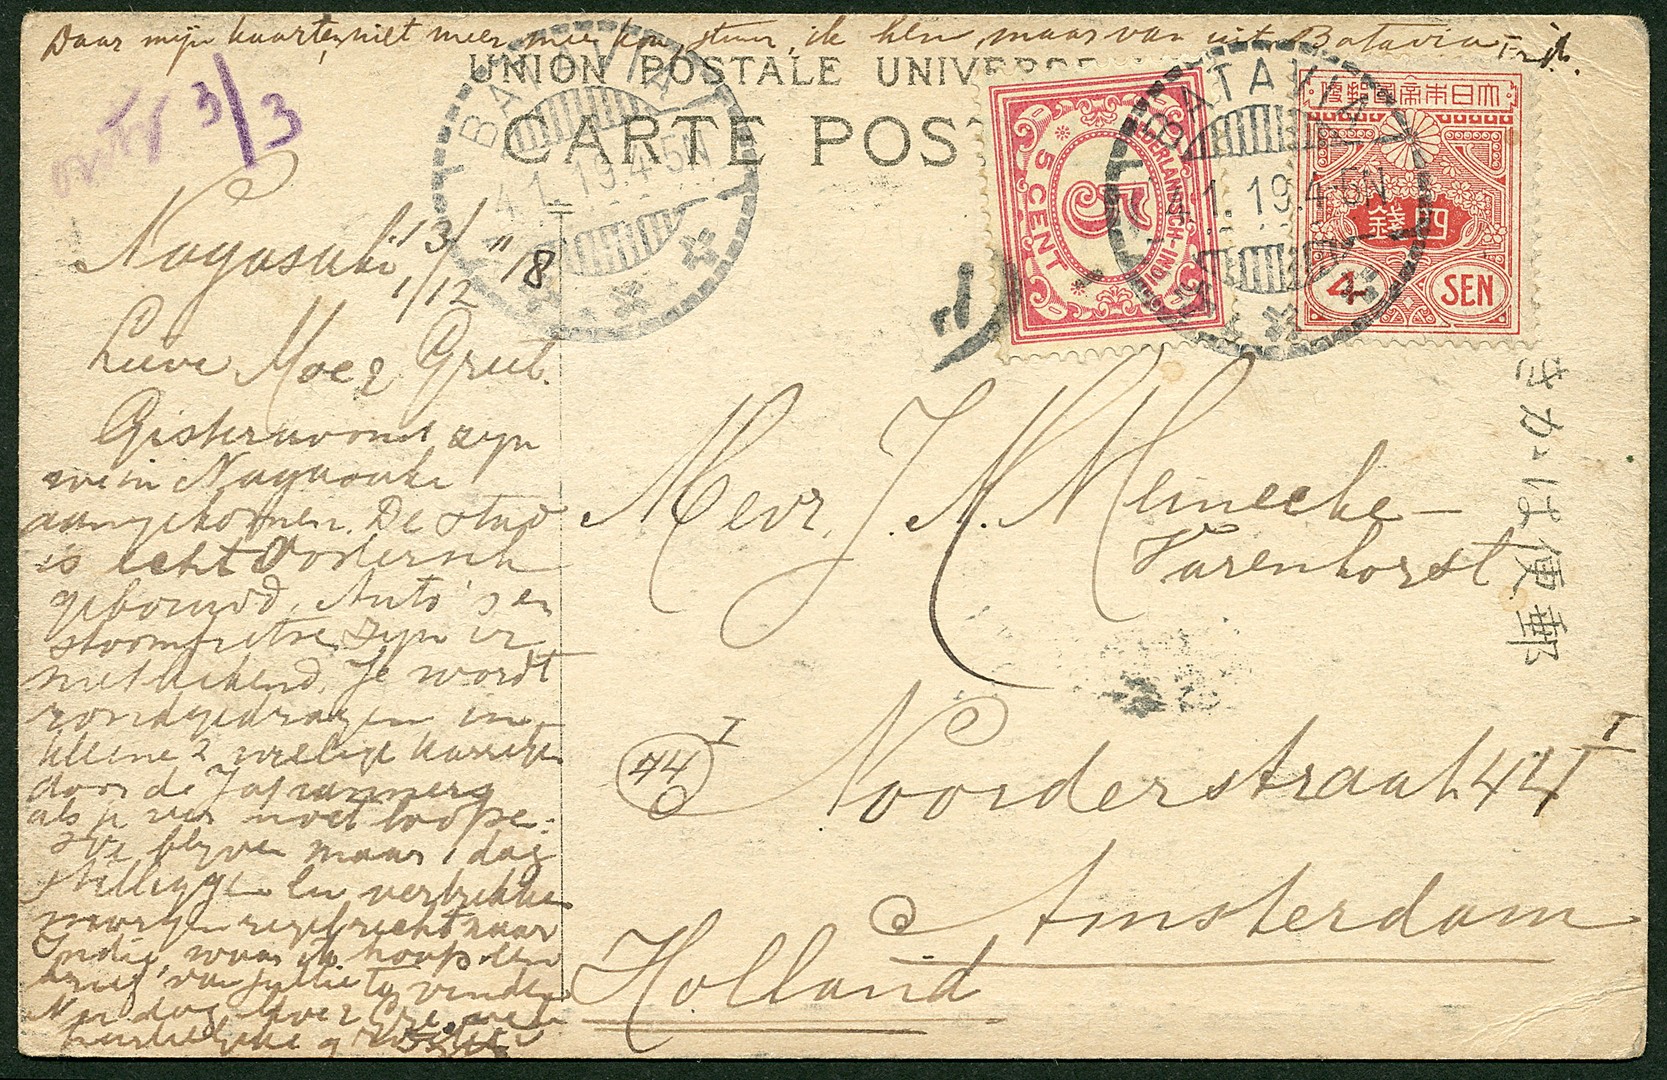 Daar mijn kaarten niet meer mee kon, stuur ik hem maar van uit Batavia
UNION POSTALE UNIVERSE
CARTE POS
3/3
BATAVIA
4.1.19.4-5N
NEDERLANDSCH-INDIË
5
5 CENT
BATAVIA
4.1.19.4-5N
大日本帝國郵便
四錢
4 SEN
きかは便郵
Nagasaki, 13/11 18
1/12
Lieve Moe & Greet.
Gisteravond zijn
we in Nagasaki
aangekomen. De stad
is echt Oostersch
gebouwd. Auto's en
zijn er
niet bekend. Je wordt
rondgedragen in
kleine 2 wielige karretjes
door de Japanners
als je ver moet loopen.
We blijven maar 1 dag
stilliggen en vertrekken
morgen regelrecht naar
Indië, waar ik hoop een
brief van jullie te vinden
Nu dag lieve
hartelijke
Mevr. J. M. Meinecke-
Varenhorst
Noorderstraat 44 I
44 I
Amsterdam
Holland